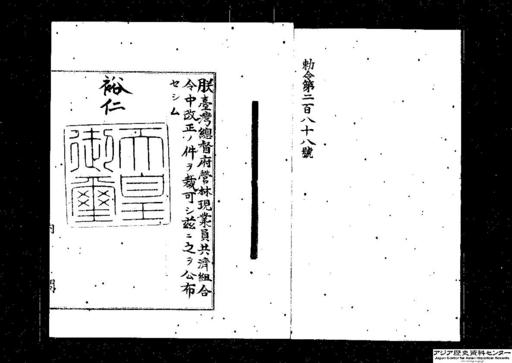 勅令第二百八十八號
朕臺灣總督府營林現業員共濟組合
令中改正ノ件ヲ裁可シ茲ニ之ヲ公布
セシム
裕仁
天皇
御璽
内 閣
アジア歴史資料センター
Japan Center for Asian Historical Records